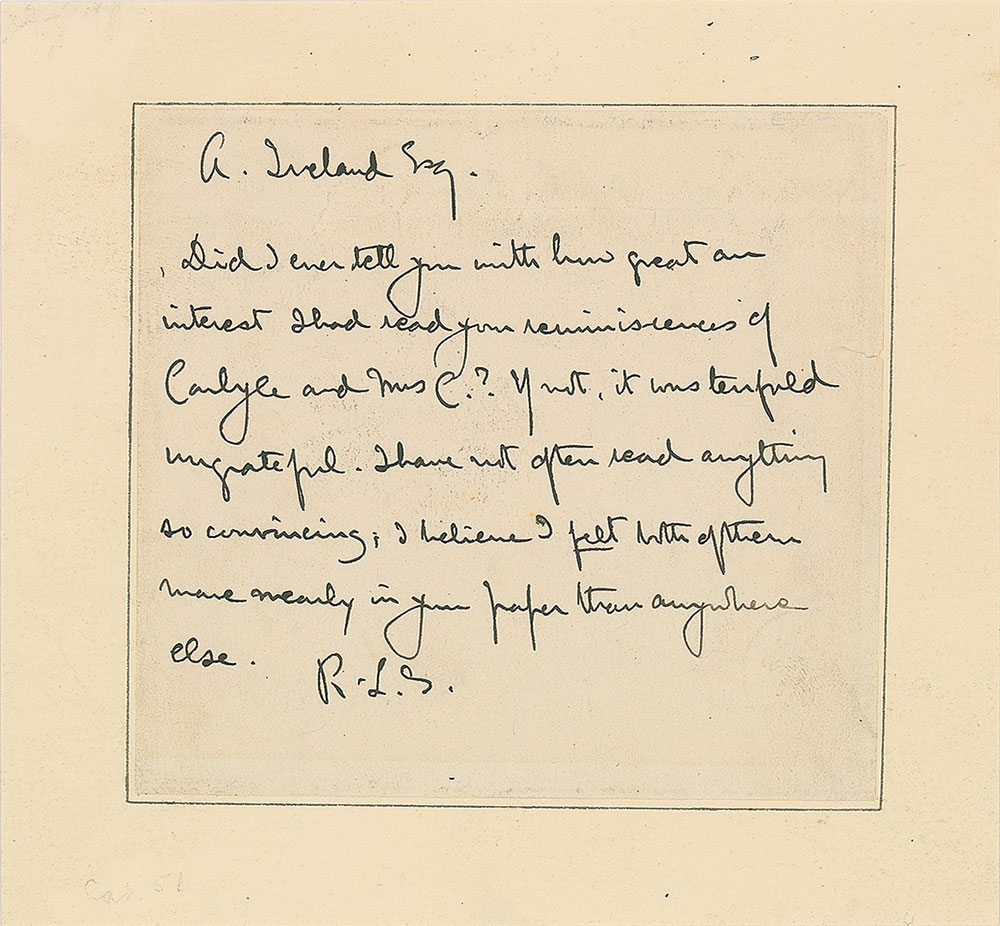 A. Ireland Esq.
Did I ever tell you with how great an
interest I had read your reminiscences of
Carlyle and Mrs C.? If not, it was tenfold
ungrateful. I have not often read anything
so convincing; I believe I felt both of them
more nearly in your paper than anywhere
else.
R. L. S.